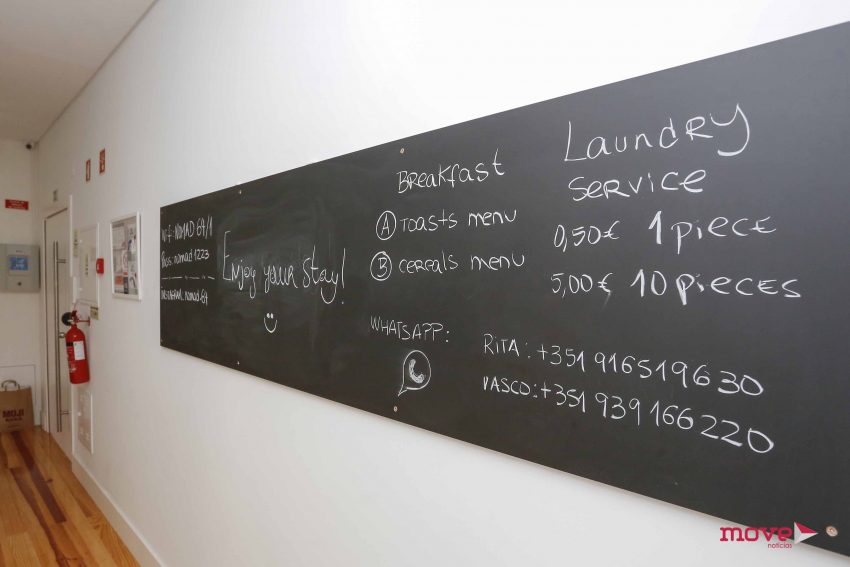 Wifi: NOMAD 64/1
Pass: nomad 1223
INSTAGRAM: nomad.64
Enjoy your stay!
Breakfast
A TOASTS MENU
B CEREALS MENU
Laundry
Service
0,50€ 1 piece
5,00€ 10 pieces
WHATSAPP:
RITA: +351 916519630
VASCO: +351 939 166 220
MUJI
move
notícias